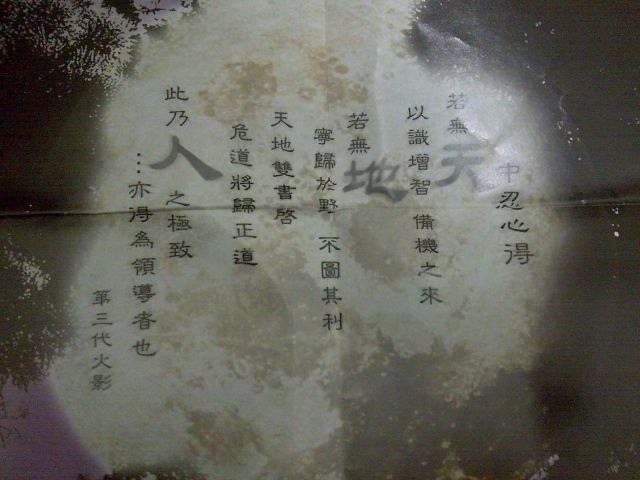 中忍心得
若無天
以識增智 備機之來
若無地
寧歸於野 不圖其利
天地雙書啓
危道將歸正道
此乃人之極致
…亦得為領導者也
第三代火影